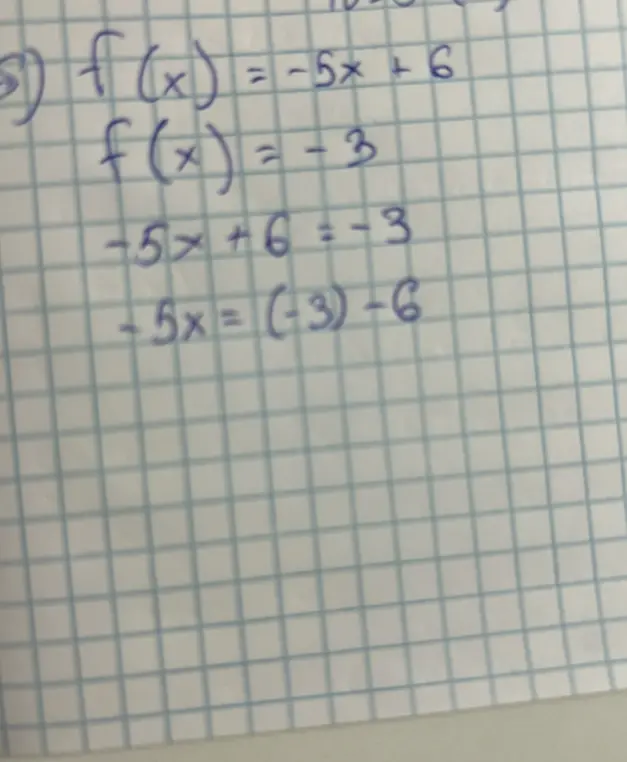 5) f(x) = -5x + 6
f(x) = -3
-5x + 6 = -3
-5x = (-3) - 6